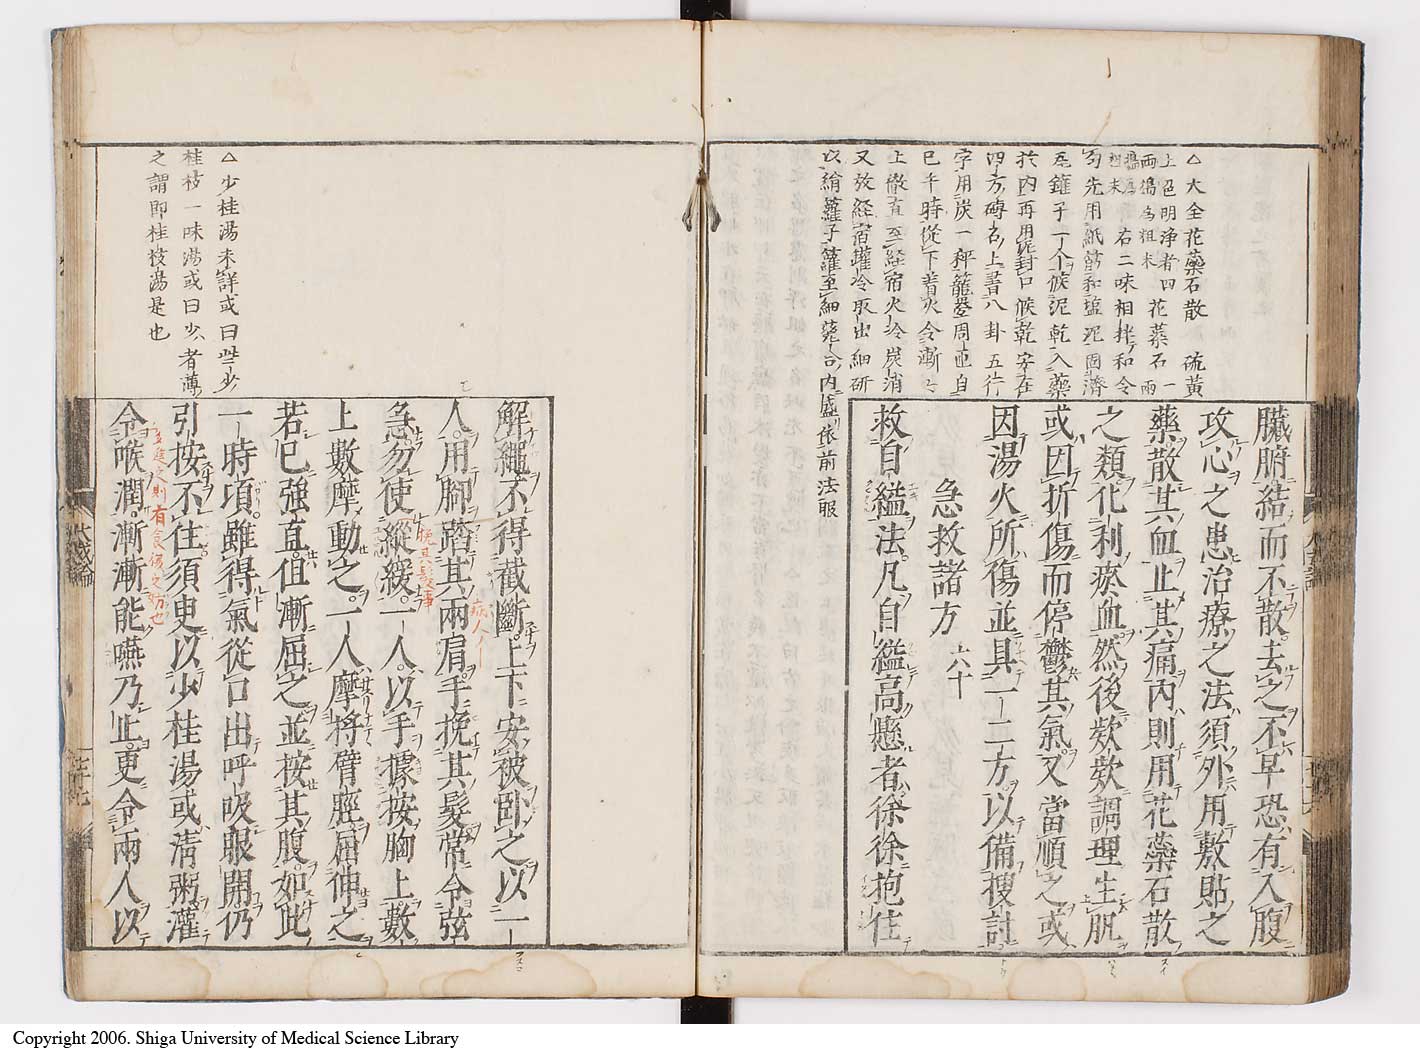 △大全花蘂石散 硫黄
上色明浄者四 花蘂石一
両搗為粗末 両
搗為
粗末 右二味相拌和令
匀先用紙筋和塩泥固濟
瓦鑵子一个候泥乾入藥
於内再用泥封口候乾安在
四方磚上上書八卦五行
字用炭一秤籠畳周迊自
巳午時從下着火令漸々
上徹直至経宿火冷炭消
又放経宿鑵冷取出細研
以絹羅子籮至細甆合内盛依前法服
臓腑結而不散去之不早恐有入腹
攻心之患治療之法須外用敷貼之
藥散其血止其痛内則用花蘂石散
之類化利瘀血然後欵欵調理生肌
或因折傷而停鬱其氣又當順之或
因湯火所傷並具一二方以備搜討
急救諸方 六十
救自縊法凡自縊高懸者徐徐抱住
△少桂湯未詳或曰些少
桂枝一味湯或曰少者薄
之謂即桂枝湯是也
解繩不得截斷上下安被卧之以一
人用脚踏其兩肩手挽其髮常令弦
急勿使縱緩一人以手據按胸上數
上數摩動之一人摩捋臂脛屈伸之
若已強直但漸屈之並按其腹如此
一時項雖得氣從口出呼吸眼開仍
引按不住須臾以少桂湯或清粥灌
令喉潤漸漸能嚥乃止更令兩人以
病人ノ
挽其髮事
多進之則有食傷之妨也
Copyright 2006. Shiga University of Medical Science Library